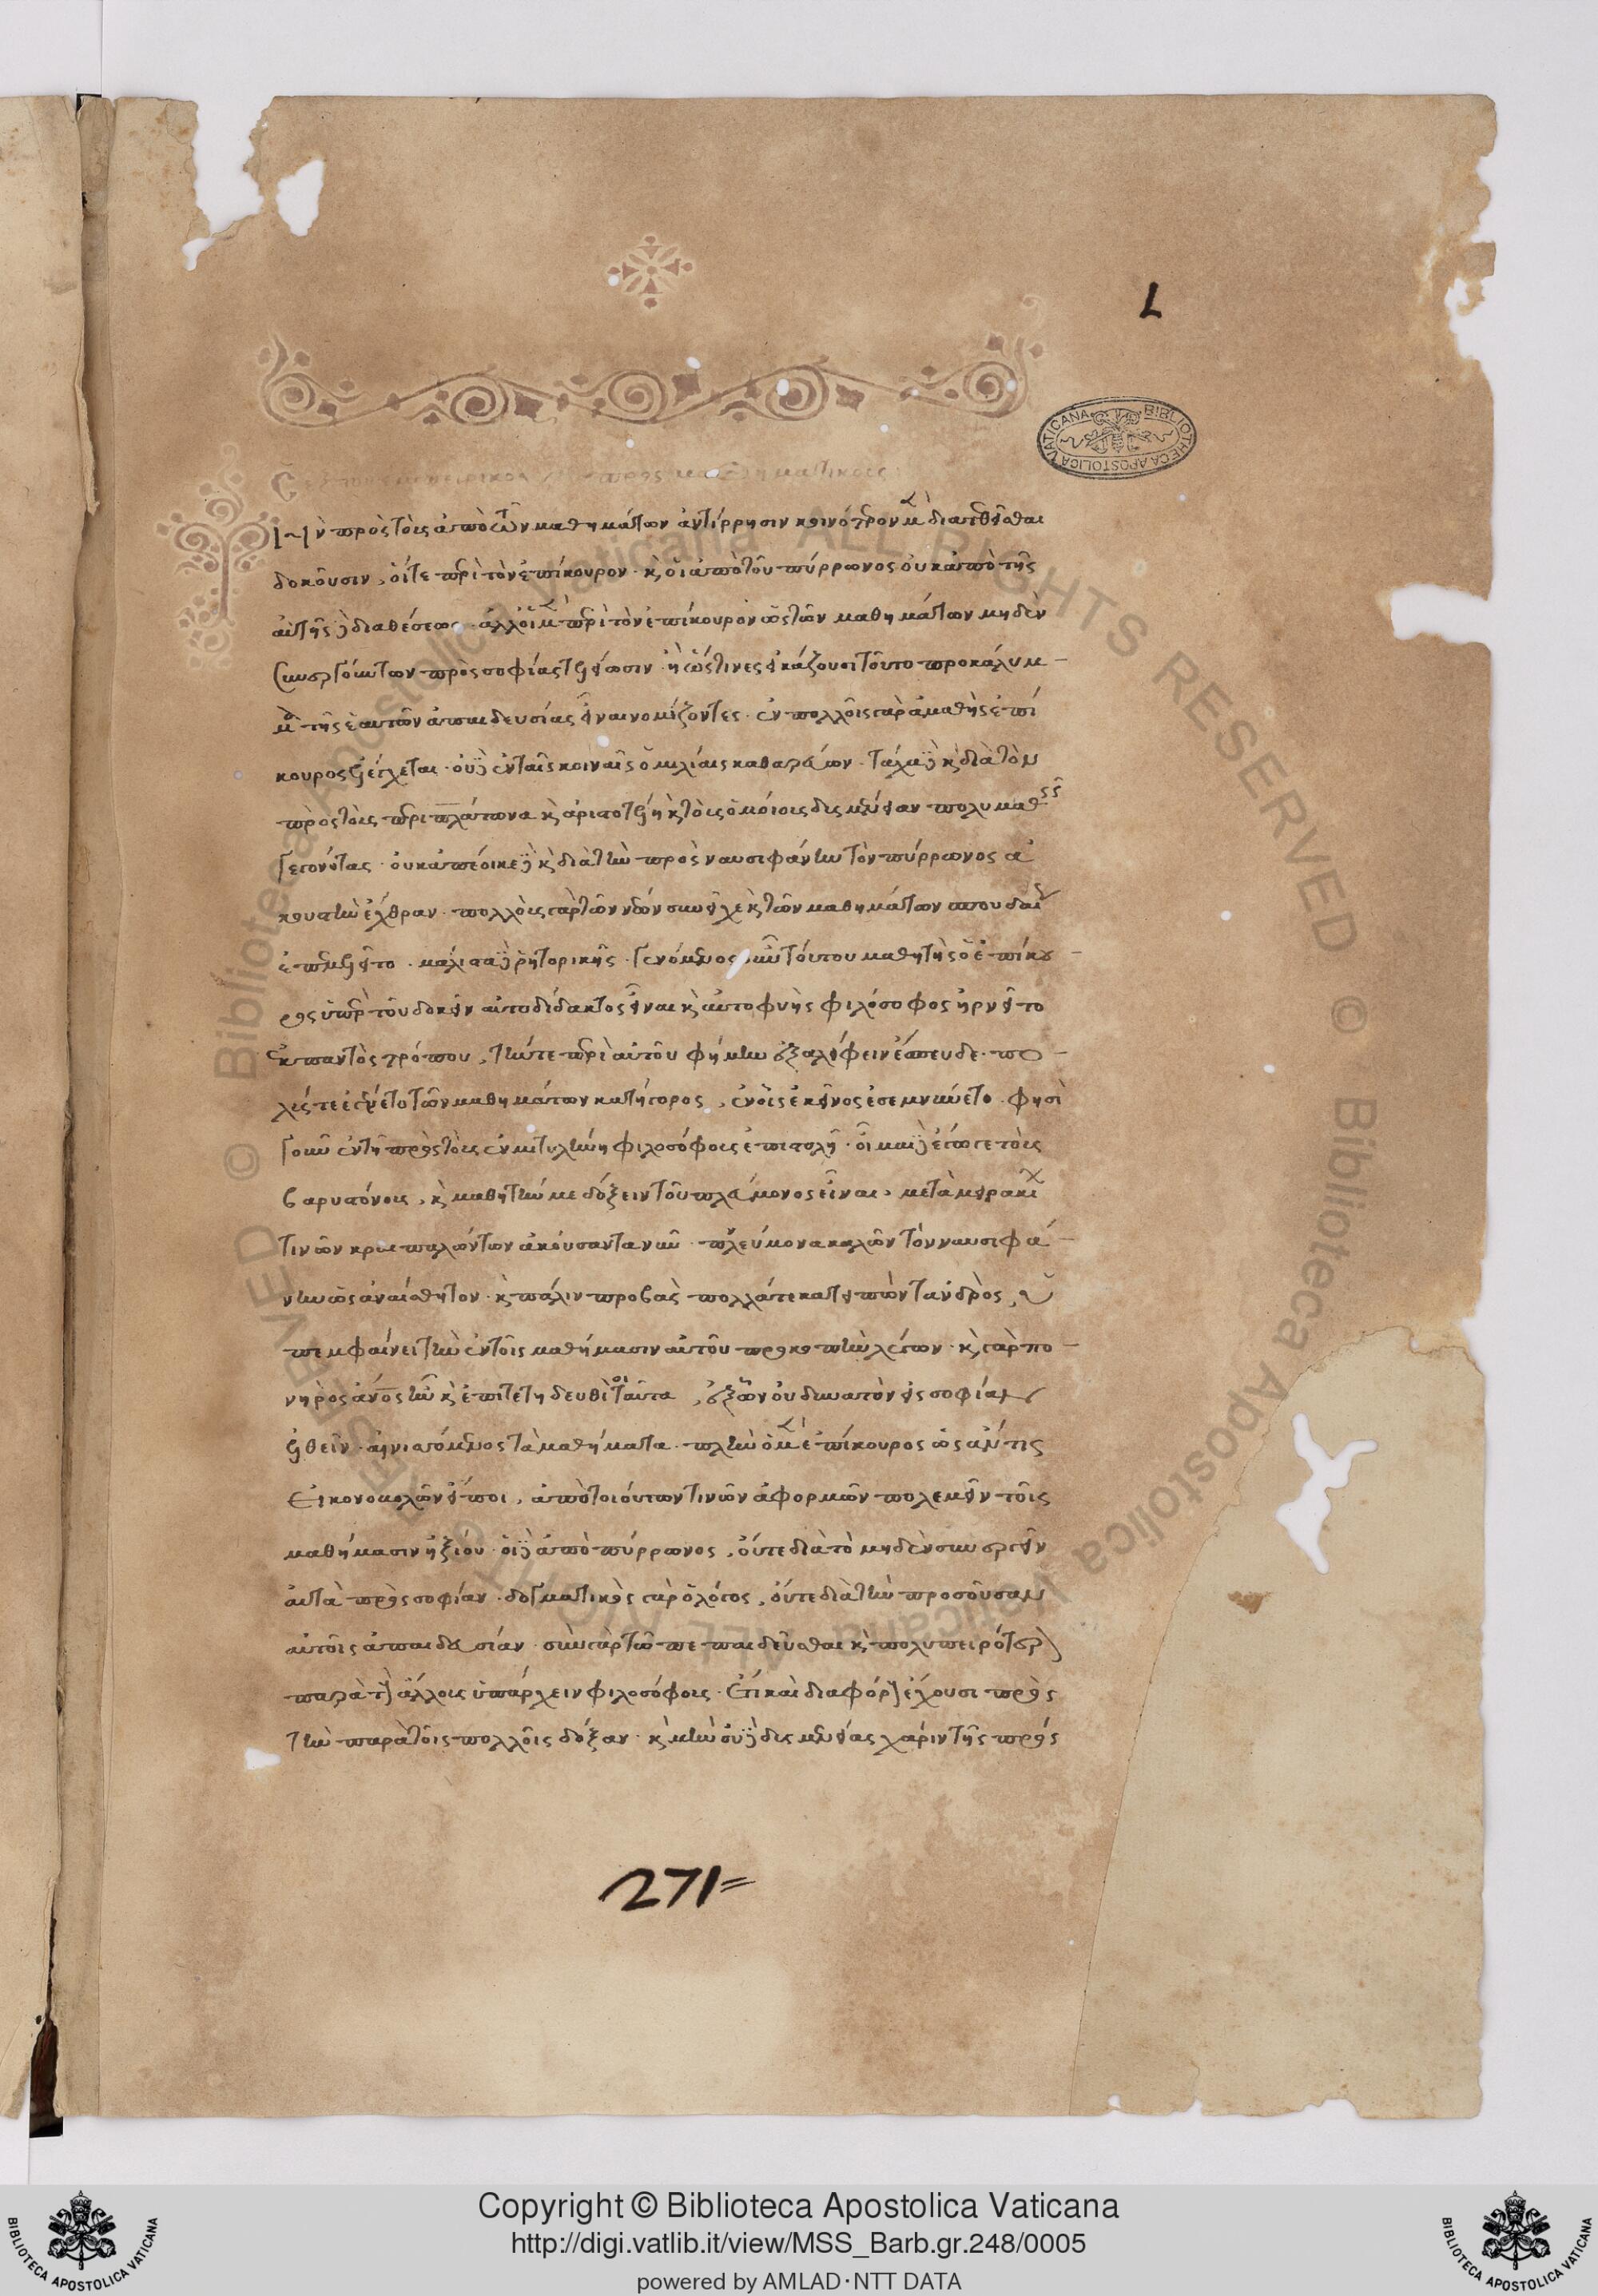 L
Σέξτου ἐμπειρικοῦ πρὸς μαθηματικούς
Τὴν πρὸς τοὺς ἀπὸ τῶν μαθημάτων ἀντίρρησιν κοινότερον μὲν διατεθεῖσθαι
δοκοῦσιν, οἵ τε περὶ τὸν ἐπίκουρον· κὶ οἱ ἀπὸ τοῦ πύρρωνος οὐκ ἀπὸ τῆς
αὐτῆς δὲ διαθέσεως· ἀλλ' οἱ μὲν περὶ τὸν ἐπίκουρον ὡς τῶν μαθημάτων μηδὲν
συνεργούντων πρὸς σοφίας τελείωσιν· ἢ ὥς τινες εἰκάζουσι τοῦτο προκάλυμ
μα τῆς ἑαυτῶν ἀπαιδευσίας εἶναι νομίζοντες· ἐν πολλοῖς γὰρ ἀμαθὴς ἐπί
κουρος ἐλέγχεται· οὐδὲ ἐν ταῖς κοιναῖς ὁμιλίαις καθαρεύων· τάχα δὲ κὶ διὰ τὴν
πρὸς τοὺς περὶ πλάτωνα κὶ ἀριστοτέλη κὶ τοὺς ὁμοίους δυσμένειαν πολυμαθεῖς
γεγονότας· οὐκ ἀπέοικε δὲ κὶ διὰ τὴν πρὸς ναυσιφάνην τὸν πύρρωνος ἀ
κουστὴν ἔχθραν· πολλοὺς γὰρ τῶν νέων συνεῖχε κὶ τῶν μαθημάτων σπουδαίως
ἐπεμελεῖτο· μάλιστα δὲ ῥητορικῆς· γενόμενος οὖν τούτου μαθητὴς ὁ ἐπίκου
ρος ὑπὲρ τοῦ δοκεῖν αὐτοδίδακτος εἶναι κὶ αὐτοφυὴς φιλόσοφος ἠρνεῖτο
ἐκ παντὸς τρόπου, τήν τε περὶ αὐτοῦ φήμην ἐξαλείφειν ἔσπευδε· πο
λύς τε ἐγένετο τῶν μαθημάτων κατήγορος, ἐν οἷς ἐκεῖνος ἐσεμνύνετο· φησὶ
γοῦν ἐν τῇ πρὸς τοὺς ἐν μιτυλήνῃ φιλοσόφους ἐπιστολῇ· οἶμαι δὲ ἔγωγε τοὺς
βαρυστόνους, κὶ μαθητήν με δόξειν τοῦ πλεύμονος εἶναι, μετὰ μειρακίων
τινῶν κραιπαλώντων ἀκούσαντα νῦν· πλεύμονα καλῶν τὸν ναυσιφά
νην ὡς ἀναίσθητον· κὶ πάλιν προβὰς πολλά τε κατειπὼν τἀνδρὸς, ὑ
πεμφαίνει τὴν ἐν τοῖς μαθήμασιν αὐτοῦ προκοπὴν λέγων· κὶ γὰρ πο
νηρὸς ἄνος ἦν κὶ ἐπιτετηδευκὼς τοιαῦτα, ἐξ ὧν οὐ δυνατὸν εἰς σοφίαν
ἐλθεῖν· αἰνισσόμενος τὰ μαθήματα· πλὴν ὁ μὲν ἐπίκουρος ὡς ἄν τις
εἰκονολογῶν εἴποι, ἀπὸ τοιούτων τινῶν ἀφορμῶν πολεμεῖν τοῖς
μαθήμασιν ἠξίου· οἱ δὲ ἀπὸ πύρρωνος, οὔτε διὰ τὸ μηδὲν συνεργεῖν
αὐτὰ πρὸς σοφίαν· δογματικὸς γὰρ ὁ λόγος, οὔτε διὰ τὴν προσοῦσαν
αὐτοῖς ἀπαιδευσίαν· σὺν γὰρ τῷ πεπαιδεῦσθαι κὶ πολυπειροτέρους
παρὰ τοὺς ἄλλους ὑπάρχειν φιλοσόφους· ἔτι καὶ ἀδιαφόρως ἔχουσι πρὸς
τὴν παρὰ τοῖς πολλοῖς δόξαν· κὶ μὴν οὐδὲ δυσμενείας χάριν τῆς πρός
271
BIBLIOTHECA APOSTOLICA VATICANA
Copyright © Biblioteca Apostolica Vaticana
http://digi.vatlib.it/view/MSS_Barb.gr.248/0005
powered by AMLAD·NTT DATA